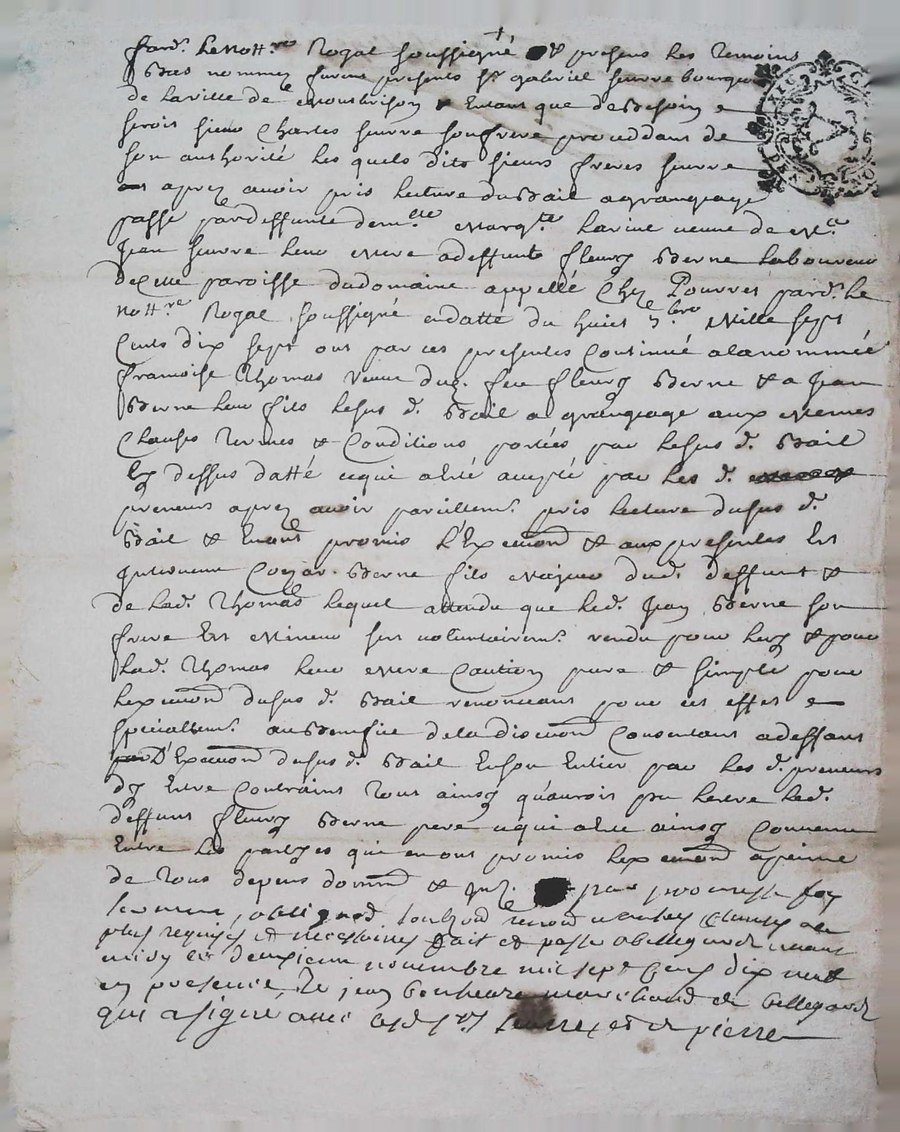 Pard. le nott.re Royal soussigné & presens les temoins
bas nommez furent presents Sr gabriel bourgeois
de la ville de Montbrison & Entant que de besoin
seroit sieur Charles son frere proceddant de
son authorité les quels dits sieurs freres
apres avoir pris lecture du bail a grangeage
passé par deffunte dem.lle Marg.te Lavine veuve de M.e
Jean leur mere a deffunt fleury Berne laboureur
de cette paroisse du domaine appellé Chez Pourret pard. le
nott.re Royal soussigné en datte du huict 7.bre Mille sept
Cents dix sept ont par ces presentes Continué a la nommée
francoise Thomas veuve dud. feu fleury Berne & a Jean
Berne leur fils le sus d. Bail a grangeage aux Memes
Clauses termes & Conditions portées par le sus d. Bail
Cy dessus datté ce qui a été accepté par les d.
preneurs apres avoir pareillem.t pris lecture du sus d.
Bail & En ont promis l'Execution & aux presentes Est
Intervenu Berne fils Majeur dud. deffunt &
de lad. Thomas lequel attendu que led. Jean Berne son
frere Est Mineur s'est volontairem.t rendu pour luy & pour
lad. Thomas leur mere Caution pure & simple pour
l'execution du sus d. Bail renonceant pour cet effet
specialem.t au Benefice de la discution Consentant a deffaut
D'Execution du sus d. Bail En son Entier par les d. preneurs
d'y Estre Contraint tout ainsy qu'auroit pu l'estre led.
deffunt fleury Berne pere ce qui a été ainsy Convenu
Entre les parties qui en ont promis l'execution a peine
de tous depens domm. & Int. par foy
serment, oblig. renon. clauses au
plus requises et necessaires fait et passé a bellegarde avant
midy le deuxieme novembre mil sept Cens dix neuf
en presence de jean bonheure marchand de bellegarde
qui a signé avec lesd. Srs et de pierre